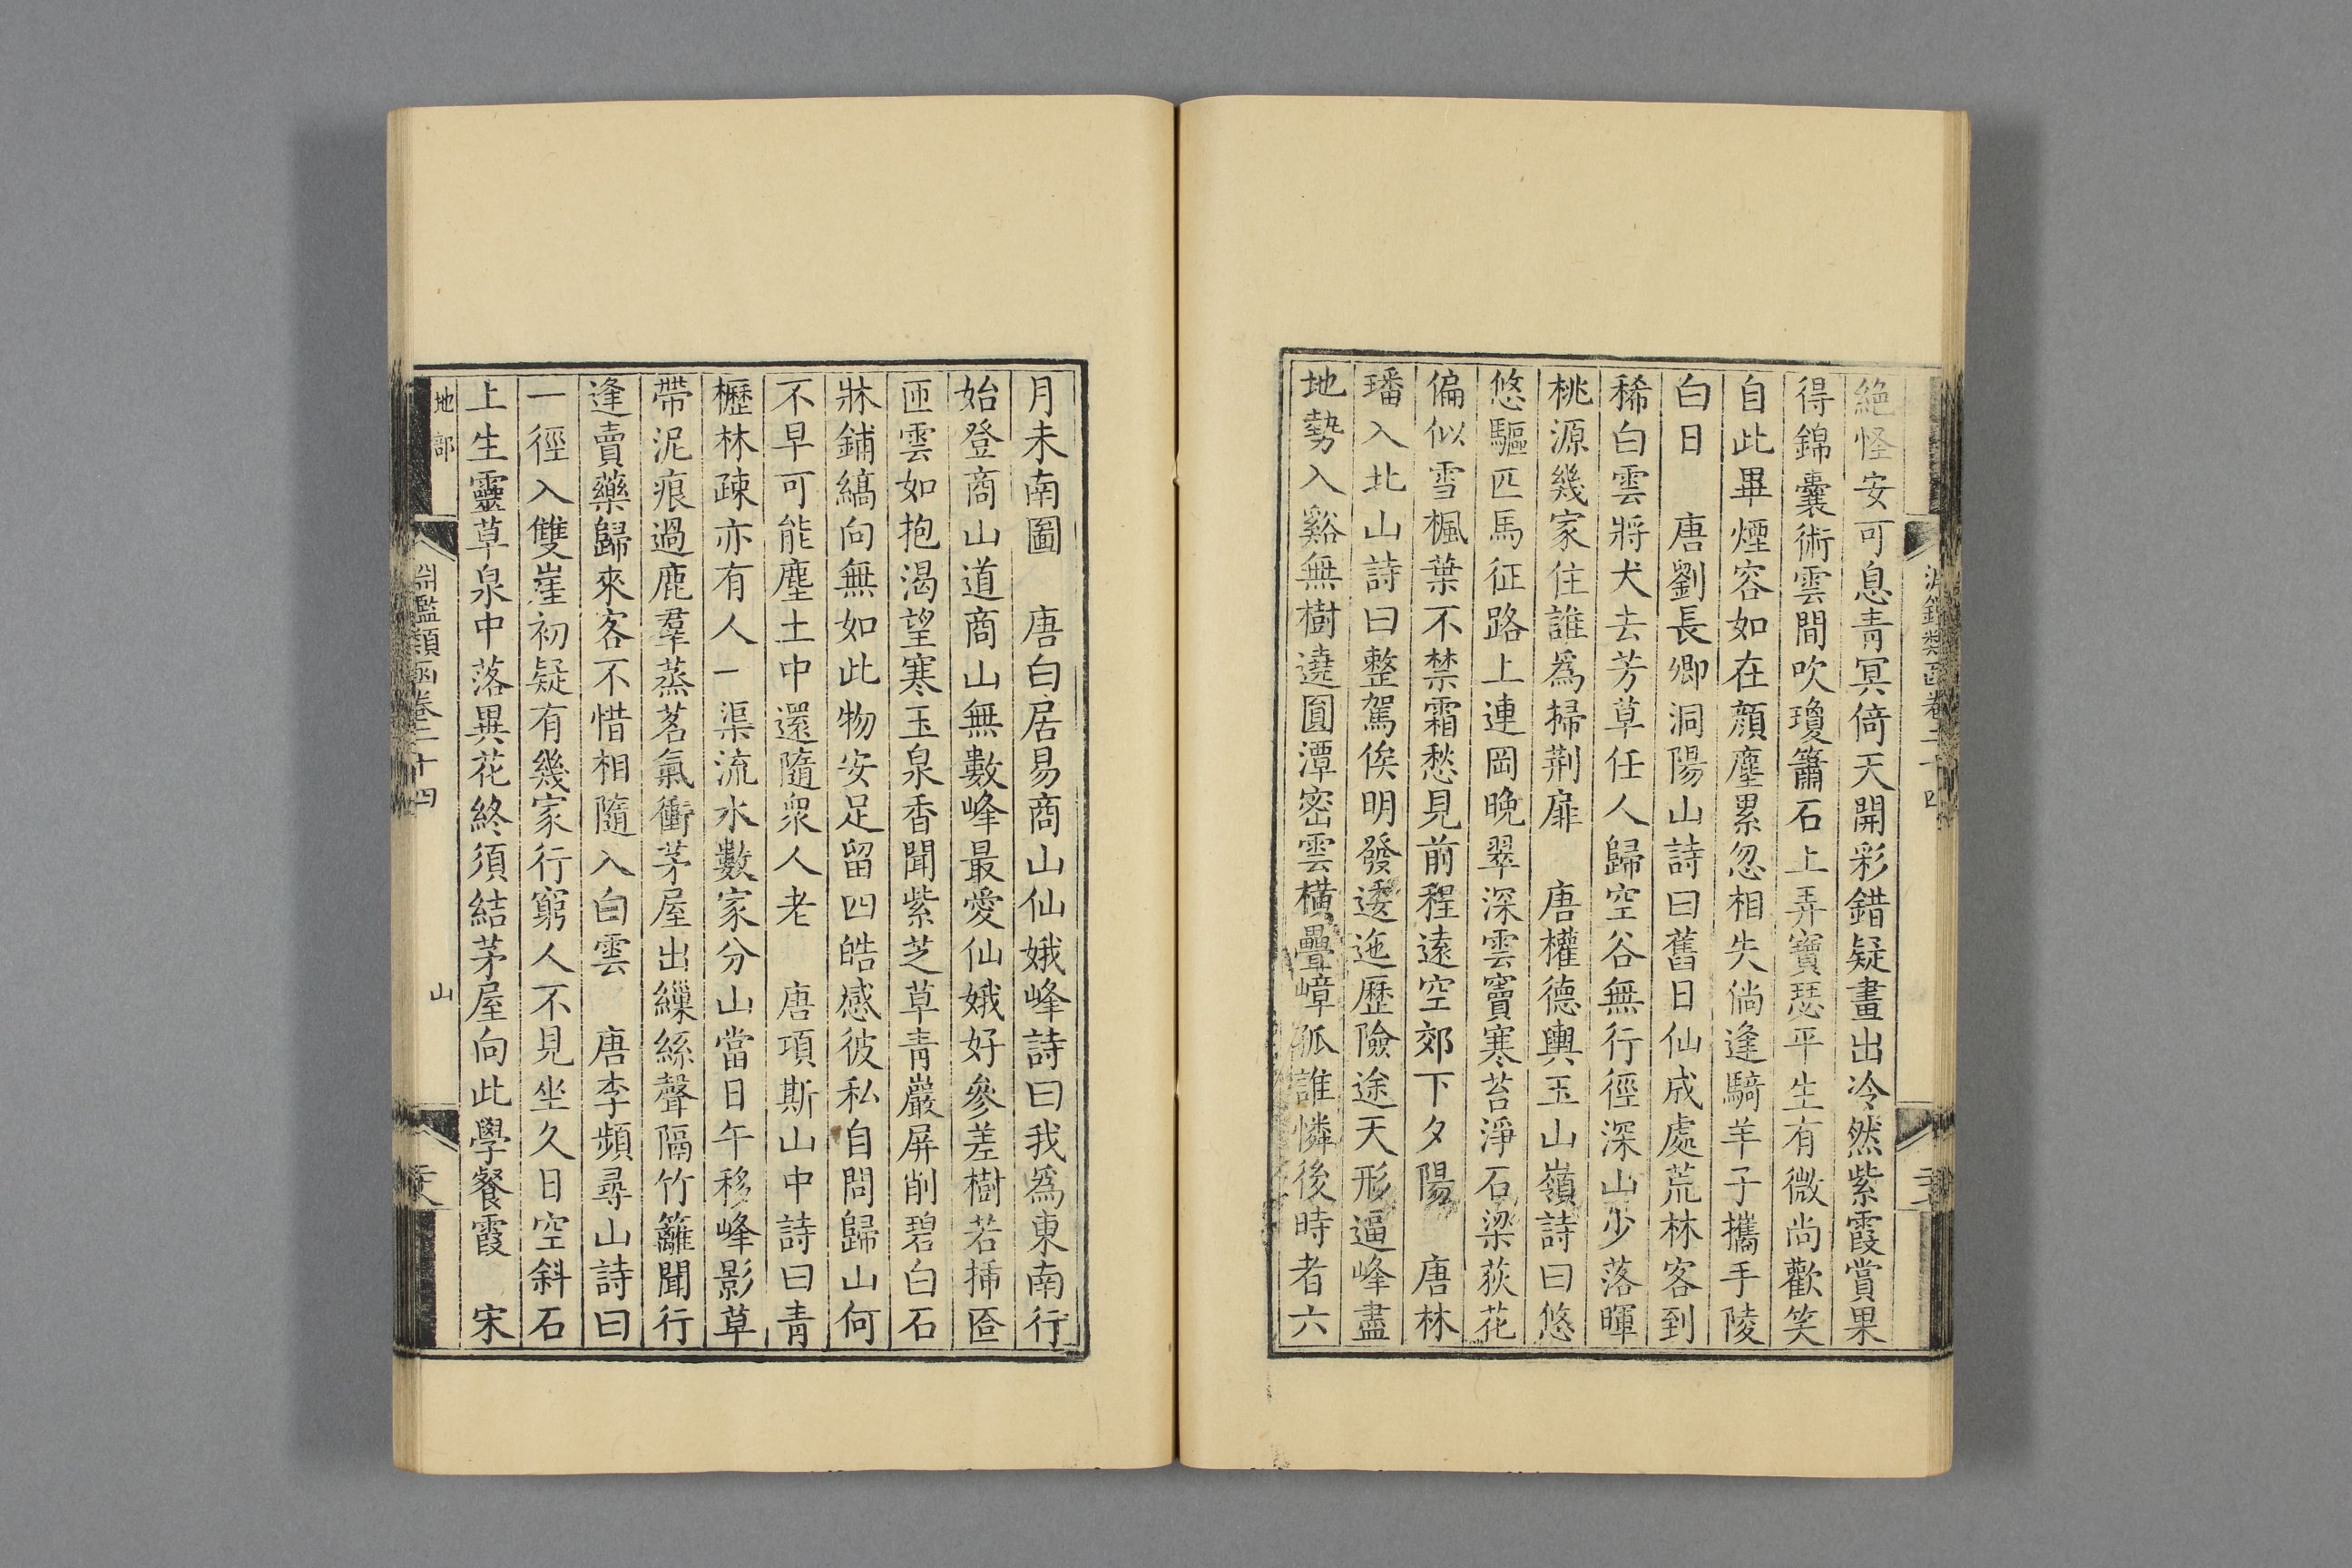 絶怪安可息青冥倚天開彩錯疑畫出冷然紫霞賞果
得錦囊術雲間吹瓊簫石上弄寶瑟平生有微尚歡笑
自此畢煙容如在顔塵累忽相失倘逢騎羊子攜手陵
白日 唐劉長卿洞陽山詩曰舊日仙成處荒林客到
稀白雲將犬去芳草任人歸空谷無行徑深山少落暉
桃源幾家住誰爲掃荆扉 唐權德輿玉山嶺詩曰悠
悠驅匹馬征路上連岡晚翠深雲竇寒苔淨石梁荻花
偏似雪楓葉不禁霜愁見前程遠空郊下夕陽 唐林
璠入北山詩曰整駕俟明發逶迤歷險途天形逼峰盡
地勢入谿無樹遶圓潭密雲橫疊嶂孤誰憐後時者六
月未南圖 唐白居易商山仙娥峰詩曰我爲東南行
始登商山道商山無數峰最愛仙娥好參差樹若插匼
匝雲如抱渴望寒玉泉香聞紫芝草青巖屏削碧白石
牀鋪縞向無如此物安足留四皓感彼私自問歸山何
不早可能塵土中還隨衆人老 唐項斯山中詩曰青
櫪林疎亦有人一渠流水數家分山當日午移峰影草
帶泥痕過鹿羣蒸茗氣衝茅屋出繅絲聲隔竹籬聞行
逢賣藥歸來客不惜相隨入白雲 唐李頻尋山詩曰
一徑入雙崖初疑有幾家行窮人不見坐久日空斜石
上生靈草泉中落異花終須結茅屋向此學餐霞 宋
地部 淵鑑類函卷二十四 山 二十八